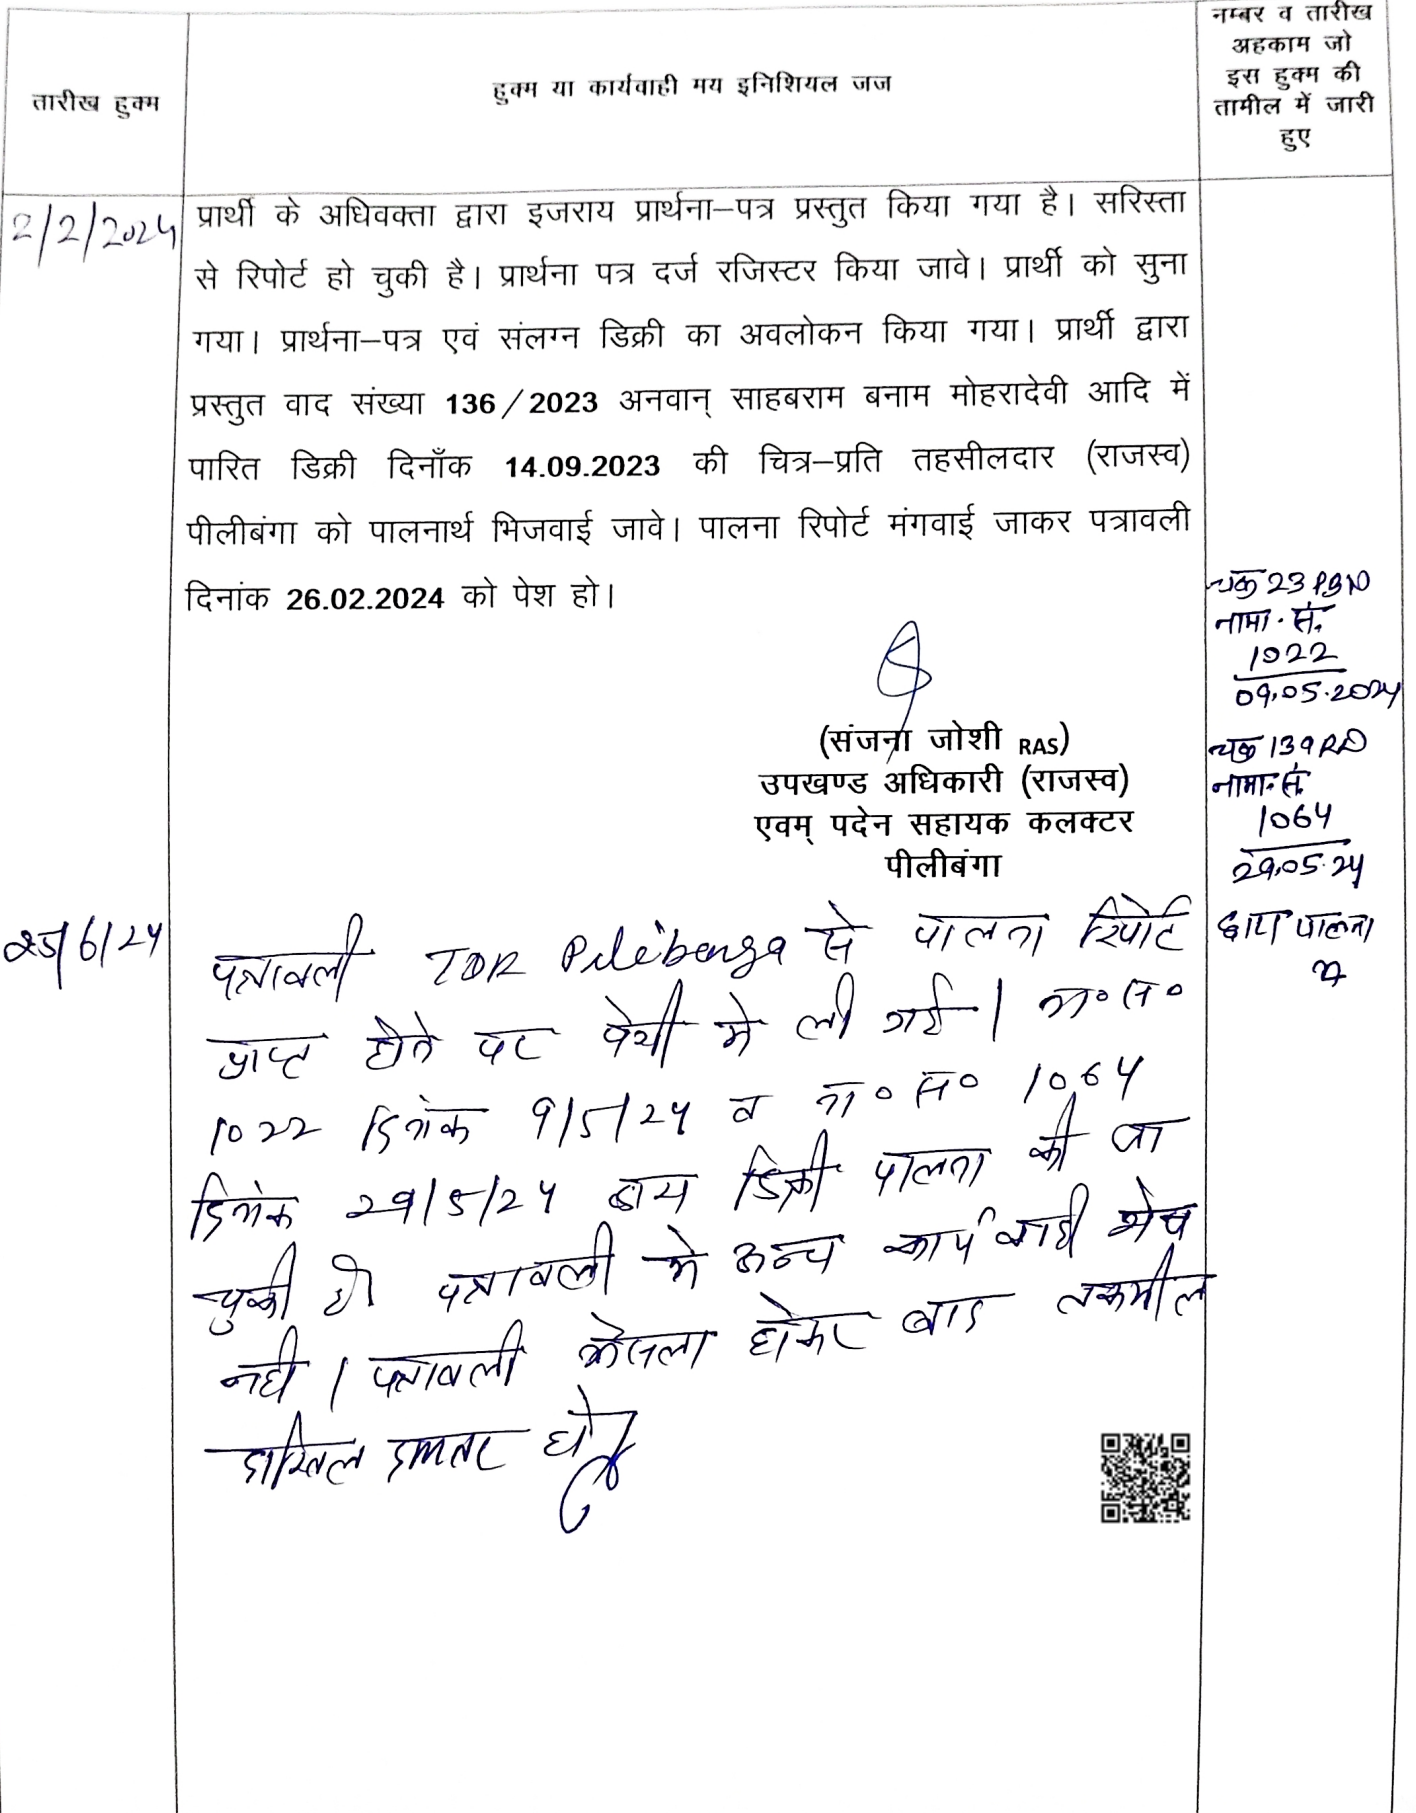 तारीख हुक्म
हुक्म या कार्यवाही मय इनिशियल जज
नम्बर व तारीख
अहकाम जो
इस हुक्म की
तामील में जारी
हुए
2/2/2024
प्रार्थी के अधिवक्ता द्वारा इजराय प्रार्थना–पत्र प्रस्तुत किया गया है। सरिस्ता
से रिपोर्ट हो चुकी है। प्रार्थना पत्र दर्ज रजिस्टर किया जावे। प्रार्थी को सुना
गया। प्रार्थना–पत्र एवं संलग्न डिक्री का अवलोकन किया गया। प्रार्थी द्वारा
प्रस्तुत वाद संख्या 136/2023 अनवान् साहबराम बनाम मोहरादेवी आदि में
पारित डिक्री दिनाँक 14.09.2023 की चित्र–प्रति तहसीलदार (राजस्व)
पीलीबंगा को पालनार्थ भिजवाई जावे। पालना रिपोर्ट मंगवाई जाकर पत्रावली
दिनांक 26.02.2024 को पेश हो।
(संजना जोशी RAS)
उपखण्ड अधिकारी (राजस्व)
एवम् पदेन सहायक कलक्टर
पीलीबंगा
चक 23 PBN
नामा. सं.
1022
09.05.2024
चक 139 RD
नामा. सं.
1064
29.05.24
द्वारा पालना
25/6/24
पत्रावली TDR Pilibanga से पालना रिपोर्ट
प्राप्त होने पर पेशी मे ली गई। ना० स०
1022 दिनांक 9/5/24 व ना० स० 1064
दिनांक 29/5/24 द्वारा डिक्री पालना की जा
चुकी है। पत्रावली मे अन्य कार्यवाही शेष
नही। पत्रावली फैसला होकर बाद तकमील
दाखिल दफ्तर हो।